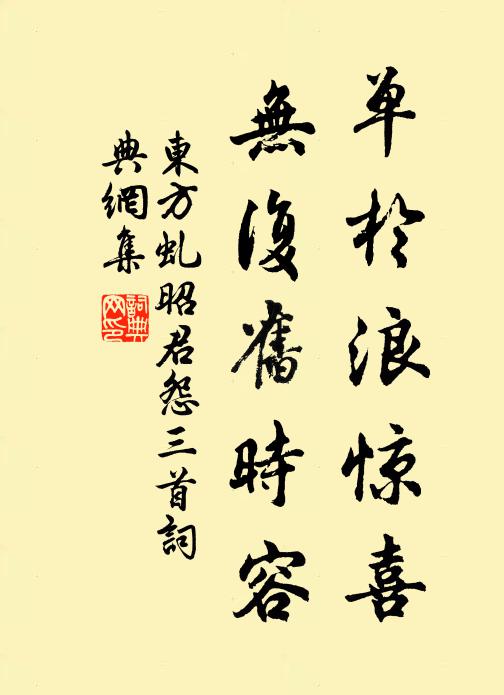 单於浪惊喜
無復舊時容
東方虬昭君怨三首詞
典網集
詞典
网印